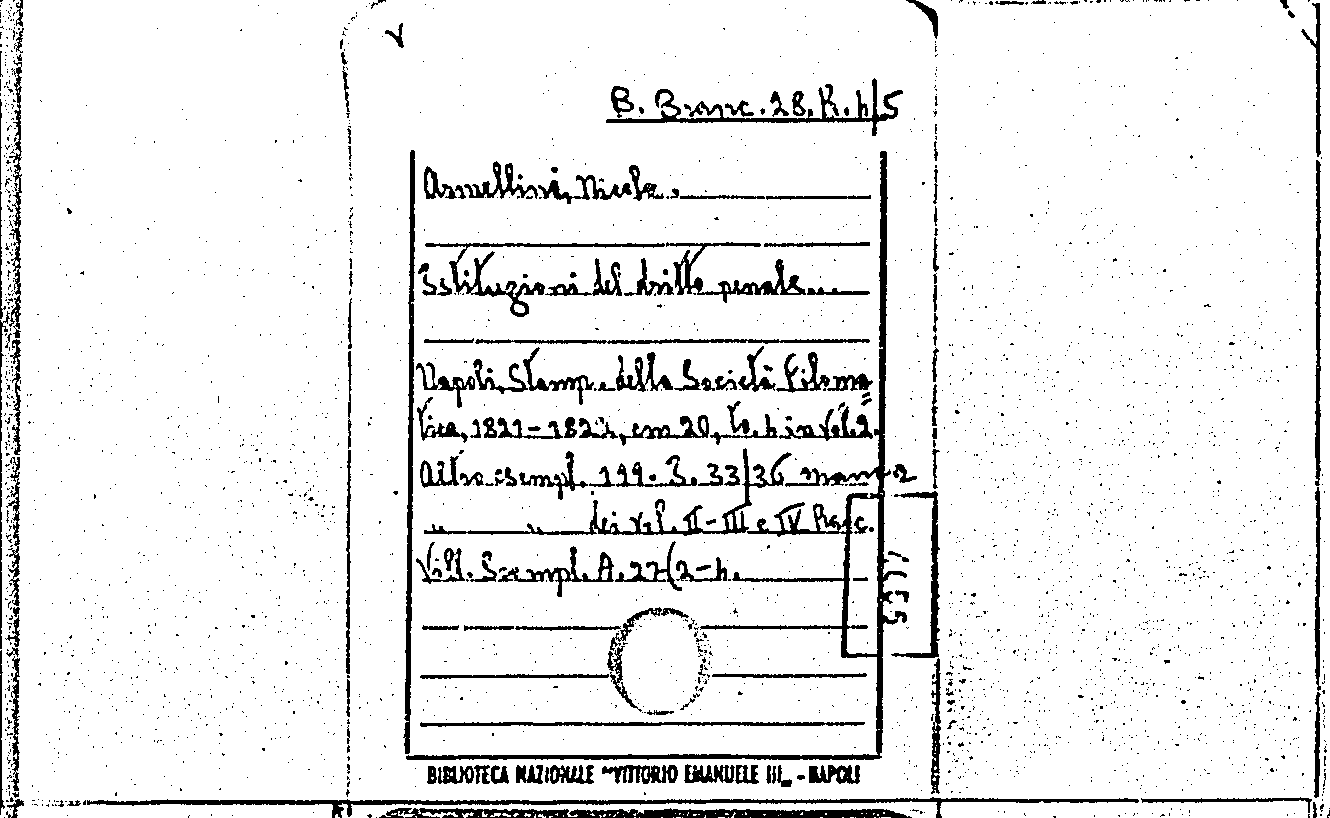 V
B. Branc. 28. K. 4/5
Armellini, Nicola.
Istituzioni del dritto penale...
Napoli, Stamp. della Società Filoma=
tica, 1821-1822, cm 20, to. 4 in vol. 2.
Altro esempl. 199. I. 33/36 manca
" " dei vol. II-III e IV Racc.
Vill. Esempl. A. 27(2-4.
BIBLIOTECA NAZIONALE "VITTORIO EMANUELE III„ - NAPOLI